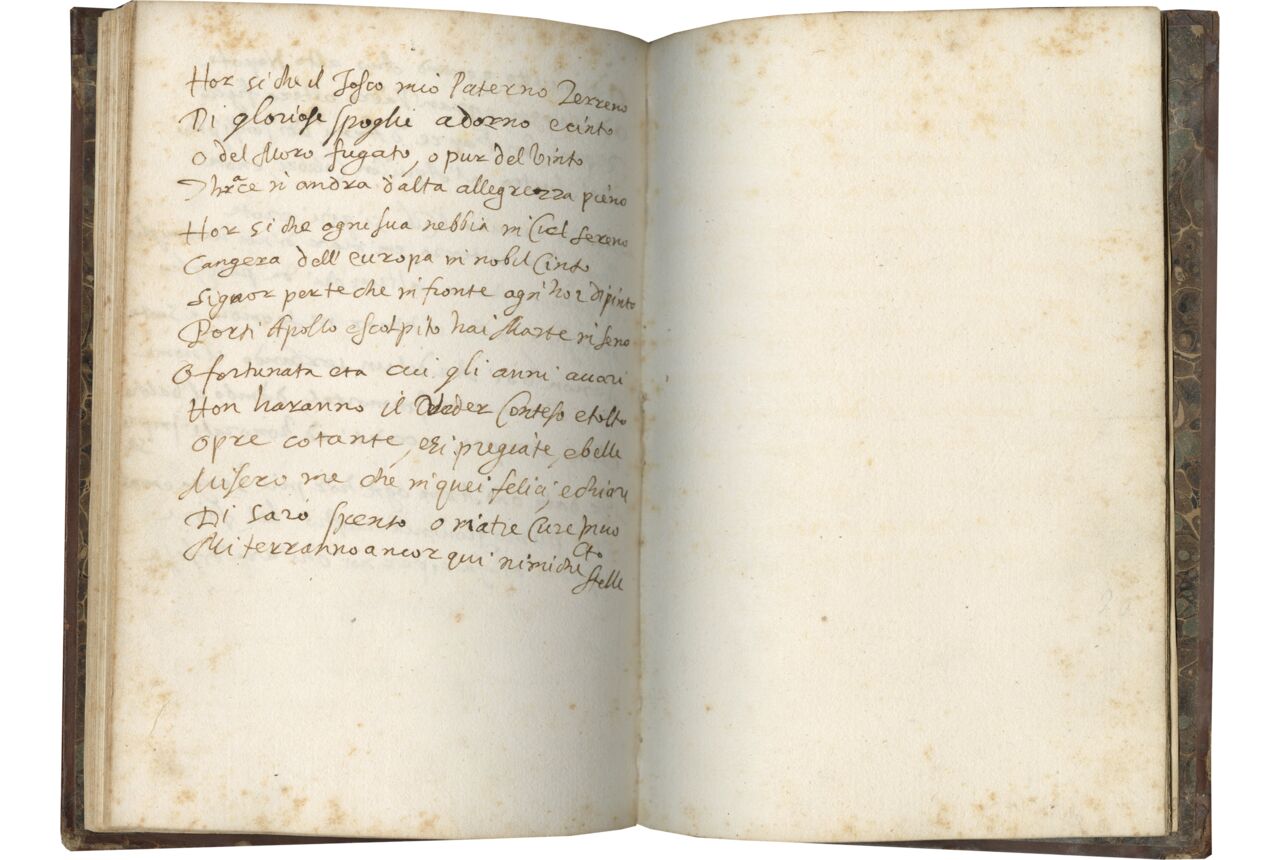 Hor si che il Tosco mio Paterno Terreno
Di gloriose spoglie adorno e cinto
O del Moro fugato, o pur del Vinto
Thrace n'andra d'alta allegrezza pieno
Hor si che ogni sua nebbia in Ciel sereno
Cangera dell'europa in nobil Cinto
Signor per te che in fronte ogn'hor dipinto
Porti Apollo e scolpito hai Marte in seno
O fortunata eta cui gli anni auari
Non haranno il Veder Conteso e tolto
Opre cotante, e si pregiate, e belle
Misero me che in quei felici, e chiari
Di sarò spento o in atre Cure inuolto
Mi terranno ancor qui nimiche stelle